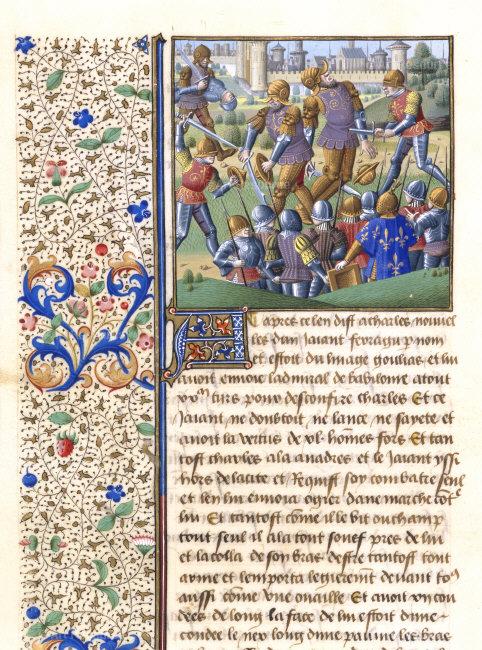 Et apres ce len dist a charles nouvel
les dun Jaiant ferragu p nom
et estoit du linage goulias et lui
avoit envoie ladmiral de babilonne atout
xxᵐ turs pour desconfire charles Et ce
Jaiant ne doubtoit ne lance ne sayete et
avoit la vertus de xl. hommes fors Et tan
tost charles ala a nadres et le Jaiant yssi
hors de la cite et Requist soy combatre seul
et len lui envoia ogier danemarche
lui Et tantost côme il le vit ou champ
tout seul il ala tout souef pres de lui
et lacolla de son bras destre tantost tout
arme et lemporta legierem̃t devant toꝰ
aussi côme une ouaille Et avoit xii cou
dees de long la face de lui estoit dune
coudee le nez long dune paulme les bras